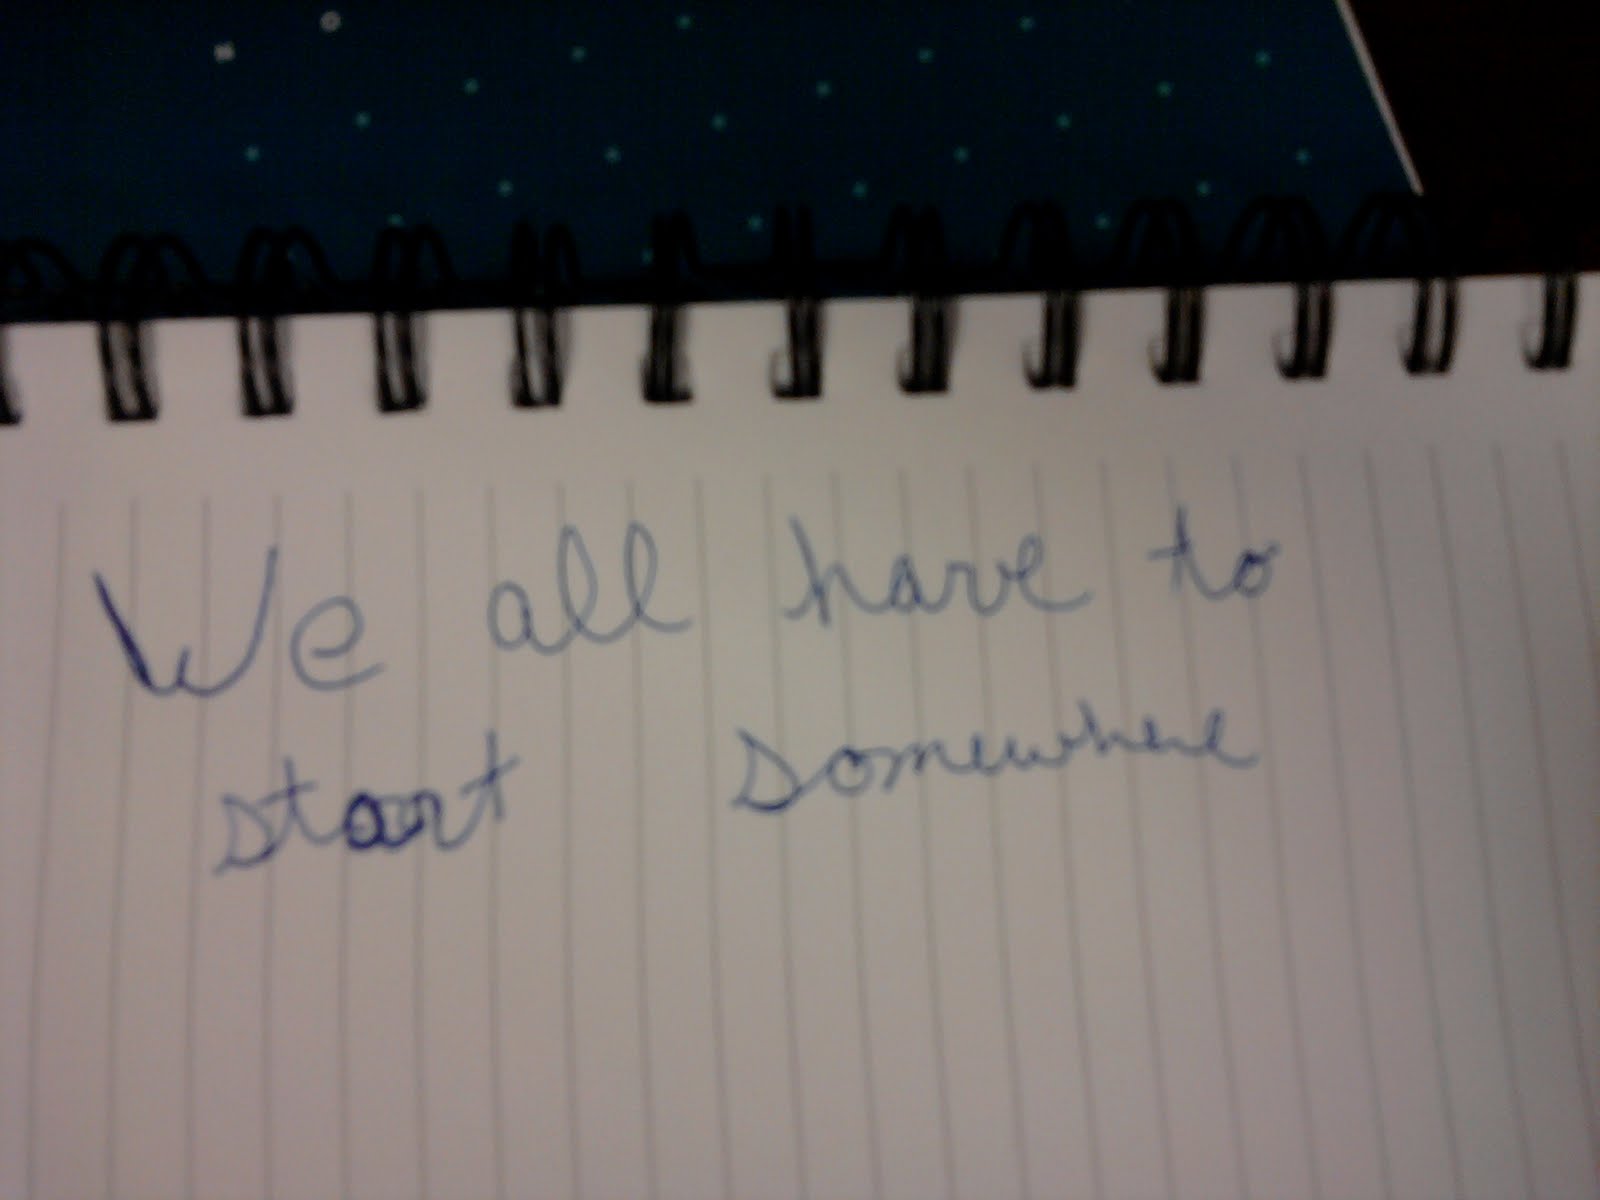 We all have to
start somewhere